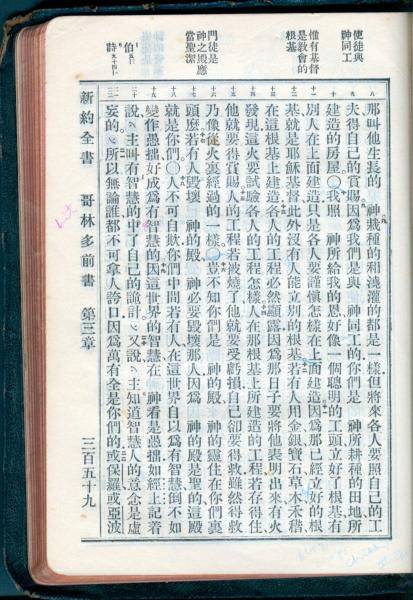 使徒與
神同工
惟有基督
是教會的
根基
門徒是
神之殿應
當聖潔
伯五
詩九十四
那叫他生長的 神栽種的和澆灌的都是一樣但將來各人要照自己的工
夫得自己的賞賜因爲我們是與 神同工的你們是 神所耕種的田地所
建造的房屋○我照 神所給我的恩好像一個聰明的工頭立好了根基有
別人在上面建造只是各人要謹慎怎樣在上面建造因爲那已經立好的根
基就是耶穌基督此外沒有人能立別的根基若有人用金銀寶石草木禾稭
在這根基上建造各人的工程必然顯露因爲那日子要將他表明出來有火
發現這火要試驗各人的工程怎樣人在那根基上所建造的工程若存得住
他就要得賞賜人的工程若被燒了他就要受虧損自己卻要得救雖然得救
乃像從火裏經過的一樣○豈不知你們是 神的殿 神的靈住在你們裏
頭麼若有人毀壞 神的殿 神必要毀壞那人因爲 神的殿是聖的這殿
就是你們○人不可自欺你們中間若有人在這世界自以爲有智慧倒不如
變作愚拙好成爲有智慧的因這世界的智慧在 神看是愚拙如經上記着
說主叫有智慧的中了自己的詭計又說主知道智慧人的意念是虛
妄的所以無論誰都不可拿人誇口因爲萬有全是你們的或保羅或亞波
新約全書 哥林多前書 第三章 三百五十九